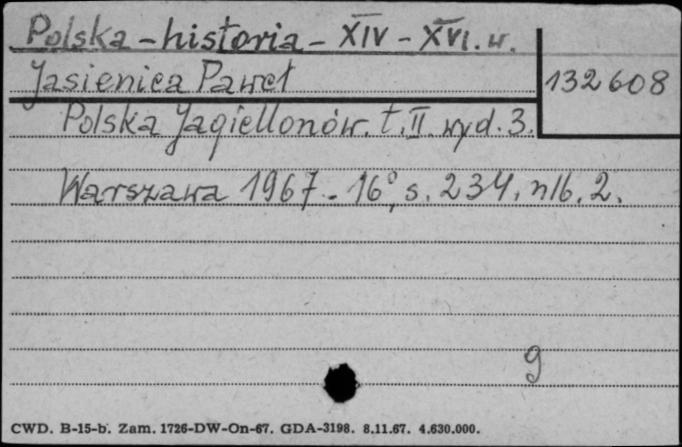 Polska - historia - XIV - XVI. w.
Jasienica Paweł
132608
Polska Jagiellonów. t. II. wyd. 3.
Warszawa 1967. - 16°, s. 234, nlb. 2.
g
CWD. B-15-b. Zam. 1726-DW-On-67. GDA-3198. 8.11.67. 4.630.000.